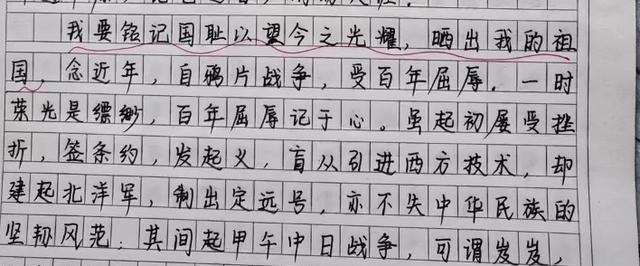 我要铭记国耻以望今之光耀，晒出我的祖
国，念近年，自鸦片战争，受百年屈辱。一时
荣光是缥缈，百年屈辱记于心。虽起初屡受挫
折，签条约，发起义，盲从引进西方技术，却
建起北洋军，制出定远号，亦不失中华民族的
坚韧风范；其间起甲午中日战争，可谓岌岌，